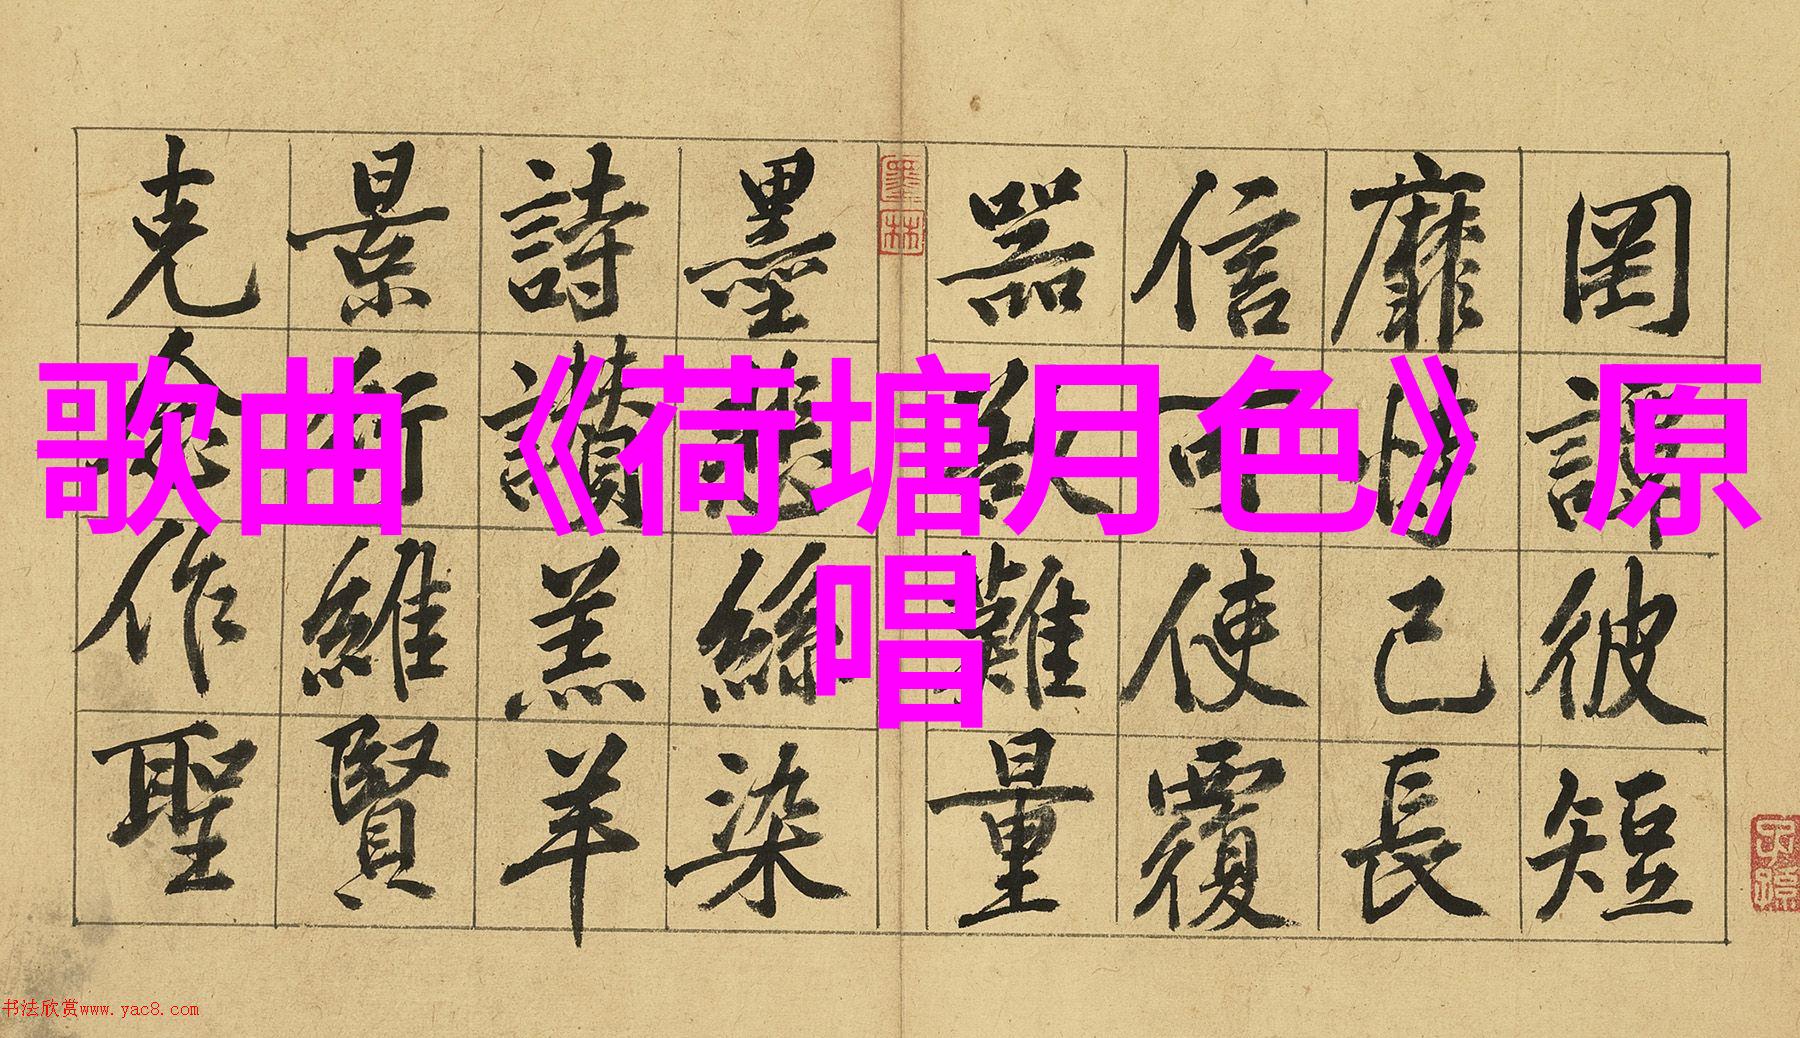 歌曲《荷塘月色》原
唱
罔談彼短
靡恃己長
信可使覆
器欲難量
墨林
墨悲絲染
詩讚羔羊
景行維賢
克念作聖
书法欣赏www.yac8.com